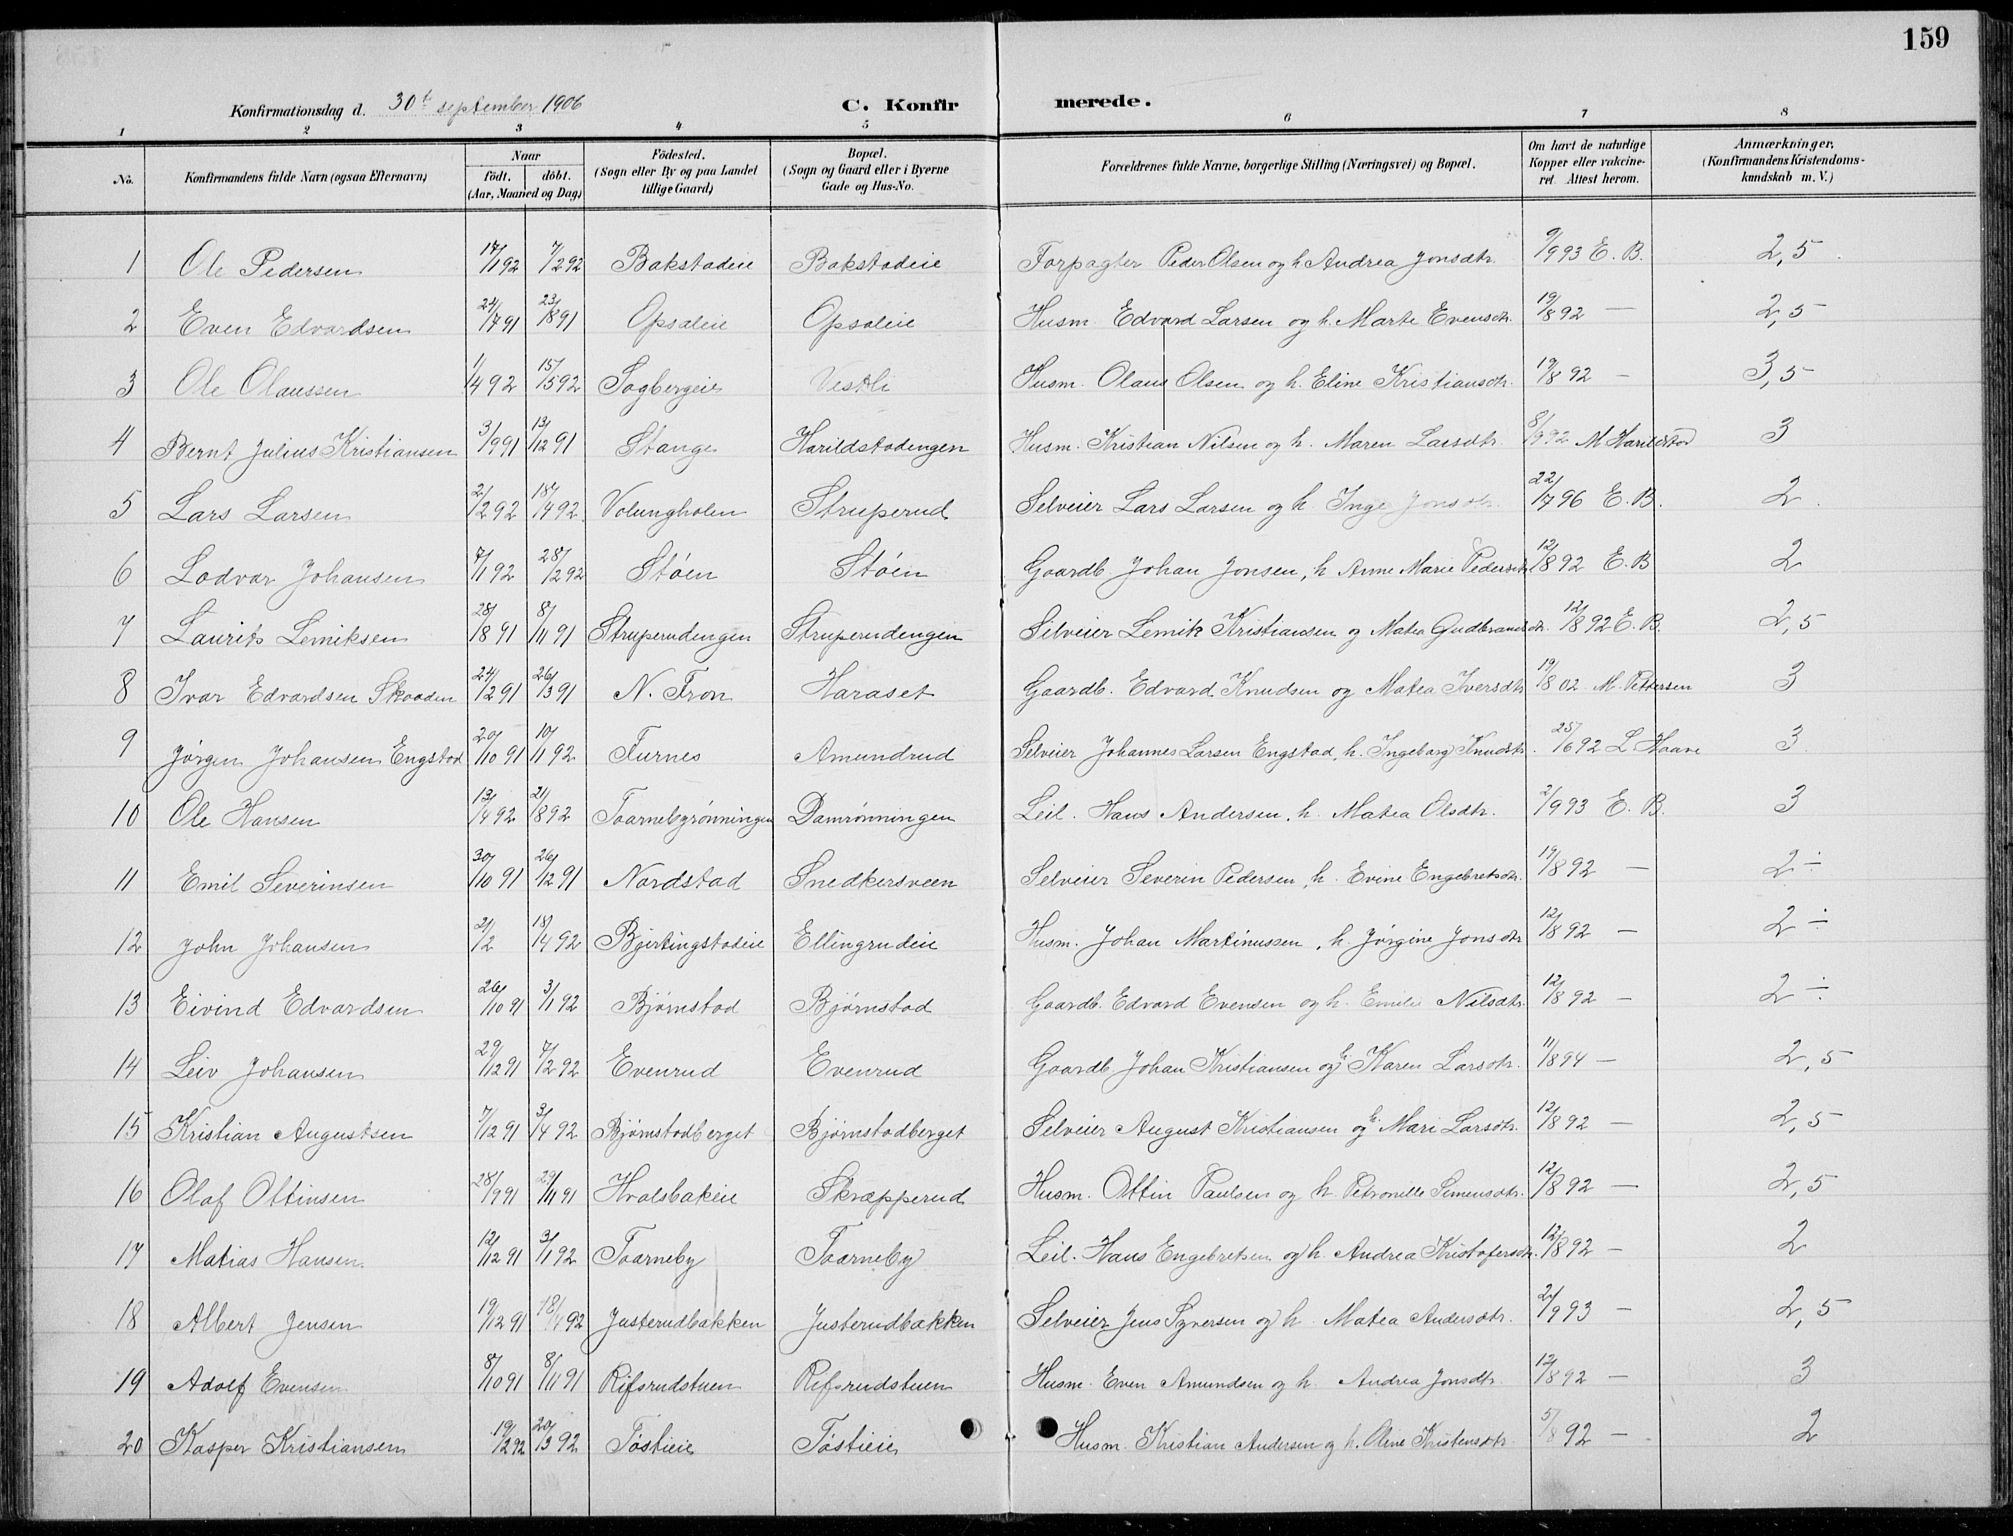 159
Konfirmationsdag d. 30te september 1906 C. Konfirmerede.
1 2 3 4 5 6 7 8
No. Konfirmandens fulde Navn (ogsaa Efternavn) Naar födt. döbt. (Aar, Maaned og Dag) Födested. (Sogn eller By og paa Landet tillige Gaard) Bopæl. (Sogn og Gaard eller i Byerne Gade og Hus-No. Forældrenes fulde Navne, borgerlige Stilling (Næringsvei) og Bopæl. Om havt de naturlige Kopper eller vakcineret. Attest herom. Anmærkninger. (Konfirmandens Kristendomskundskab m. V.)
1 Ole Pedersen 17/1 92 7/2 92 Bakstadeie Bakstadeie Forpagter Peder Olsen og h. Andrea Jonsdtr. 9/9 93 E. B. 2,5
2 Even Edvardsen 24/7 91 23/8 91 Opsaleie Opsaleie Husm. Edvard Larsen og h. Marte Evensdtr. 19/8 92 — 2,5
3 Ole Olaussen 1/4 92 15/5 92 Sogbergeie Vestli Husm. Olaus Olsen og h. Eline Kristiansdtr. 19/8 92 — 3,5
4 Bernt Julius Kristiansen 3/9 91 13/12 91 Stange Harildstadengen Husm. Kristian Nilsen og h. Maren Larsdtr. 8/9 92 M. Harildstad 3
5 Lars Larsen 2/2 92 18/4 92 Volungholen Struperud Selveier Lars Larsen og h. Inge Jonsdtr. 22/7 96 E. B. 2
6 Lodvar Johansen 7/1 92 28/2 92 Støen Støen Gaardb. Johan Jonsen, h. Anne Marie Pedersdtr. 12/8 92 E. B 2
7 Laurits Lemiksen 28/8 91 8/11 91 Struperudengen Struperudengen Selveier Lemik Kristiansen og Matea Gudbrandsdtr. 12/8 92 E. B. 2,5
8 Ivar Edvardsen Skaaden 24/2 91 26/3 91 N. Fron Haraset Gaardb. Edvard Knudsen og Matea Iversdtr 19/8 02 M. Pettersen 3
9 Jørgen Johansen Engstad 20/10 91 10/1 92 Furnes Amundrud Selveier Johannes Larsen Engstad, h. Ingeborg Knudsdtr. 25/6 92 L. Haave 3
10 Ole Hansen 13/4 92 21/8 92 Taarnebyrønningen Damrønningen Leil. Hans Andersen, h. Matea Olsdtr. 2/9 93 E. B. 3
11 Emil Severinsen 30/10 91 26/12 91 Nordstad Snedkersveen Selveier Severin Pedersen, h. Evine Engebretsdtr. 19/8 92 — 2 ÷
12 John Johansen 21/2 18/4 92 Bjertingstadeie Ellingrudeie Husm. Johan Martinussen, h. Jørgine Jonsdtr 12/8 92 — 2 ÷
13 Eivind Edvardsen 26/10 91 3/1 92 Bjørnstad Bjørnstad Gaardb. Edvard Evensen og h. Emilie Nilsdtr. 12/8 92 — 2 ÷
14 Leiv Johansen 29/12 91 7/2 92 Evenrud Evenrud Gaardb. Johan Kristiansen og h. Karen Larsdtr. 11/8 94 — 2,5
15 Kristian Augustsen 7/12 91 3/4 92 Bjørnstadberget Bjørnstadberget Selveier August Kristiansen og h. Mari Larsdtr. 12/8 92 — 2,5
16 Olaf Ottinsen 28/9 91 29/11 91 Hvalsbakeie Skræpperud Husm. Ottin Paulsen og h. Petronille Simensdtr. 12/8 92 — 2,5
17 Matias Hansen 12/12 91 3/1 92 Taarneby Taarneby Leil. Hans Engebretsen og h. Andrea Kristofersdtr. 12/8 92 — 2
18 Albert Jensen 19/12 91 18/4 92 Justerudbakken Justerudbakken Selveier Jens Syversen og h. Matea Andersdtr. 2/9 93 — 2,5
19 Adolf Evensen 8/10 91 8/11 91 Rifsrudstuen Rifsrudstuen Husm. Even Amundsen og h. Andrea Jonsdtr. 12/8 92 — 3
20 Kasper Kristiansen 19/2 92 20/3 92 Tøstieie Tøstieie Husm. Kristian Andersen og h. Oline Kristensdtr. 5/8 92 — 2